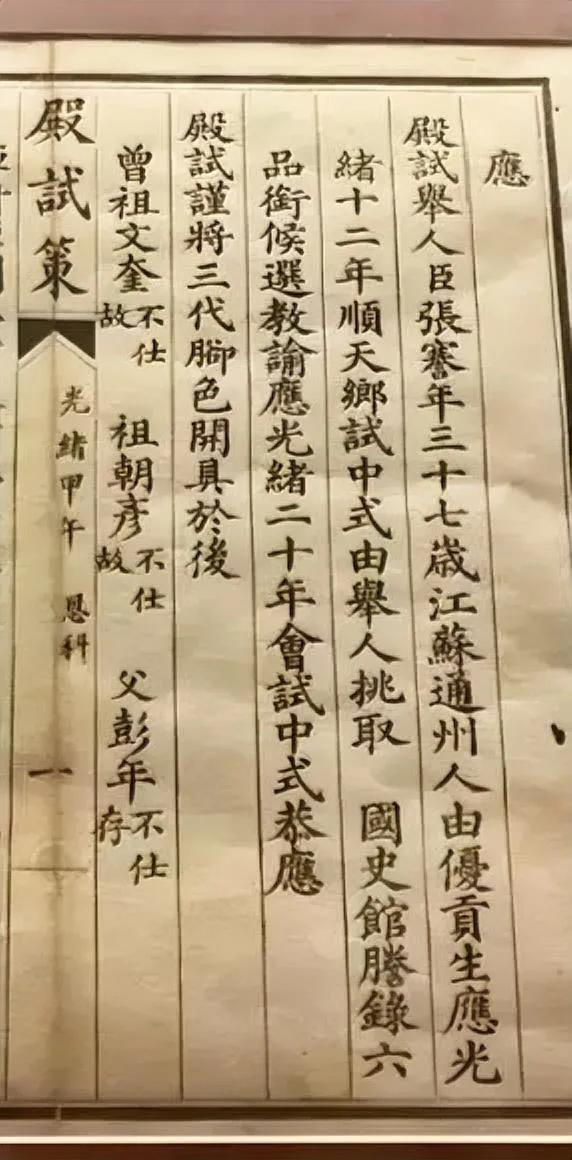 應
殿試舉人臣張謇年三十七歲江蘇通州人由優貢生應光
緒十二年順天鄉試中式由舉人挑取 國史館謄錄六
品銜候選教諭應光緒二十年會試中式恭應
殿試謹將三代腳色開具於後
曾祖文奎不仕故 祖朝彥不仕故 父彭年不仕存
殿試策 光緒甲午 恩科 一